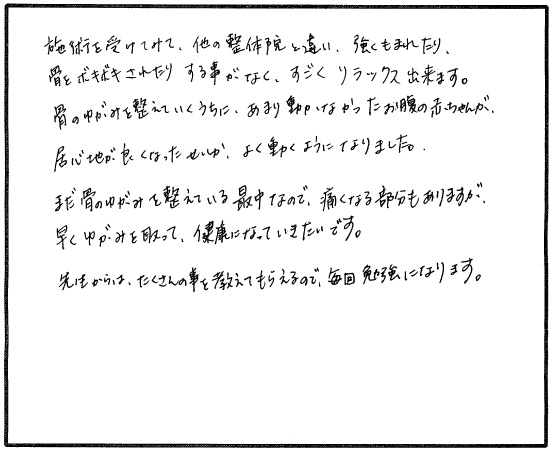 施術を受けてみて、他の整体院と違い、強くもまれたり、
骨をボキボキされたりする事がなく、すごくリラックス出来ます。
骨のゆがみを整えていくうちに、あまり動かなかったお腹の赤ちゃんが、
居心地が良くなったせいか、よく動くようになりました。
まだ骨のゆがみを整えている最中なので、痛くなる部分もありますが、
早くゆがみを取って、健康になっていきたいです。
先生からは、たくさんの事を教えてもらえるので、毎回勉強になります。